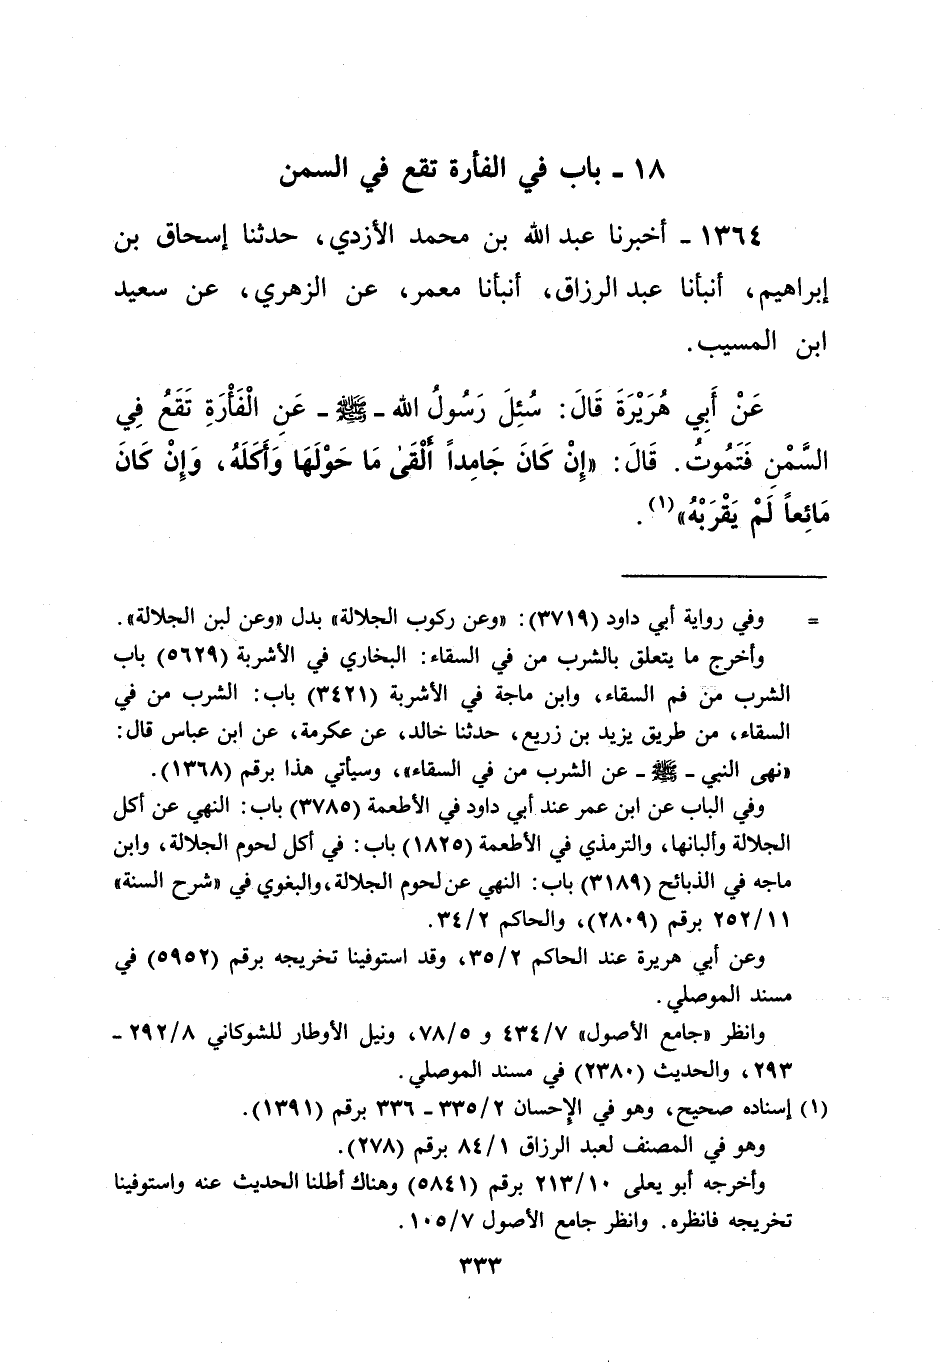 ١٨ - باب في الفأرة تقع في السمن
١٣٦٤ - أخبرنا عبد الله بن محمد الأزدي، حدثنا إسحاق بن
إبراهيم، أنبأنا عبد الرزاق، أنبأنا معمر، عن الزهري، عن سعيد
ابن المسيب.
عَنْ أَبِي هُرَيْرَةَ قَالَ: سُئِلَ رَسُولُ الله - ﷺ - عَنِ الْفَأْرَةِ تَقَعُ فِي
السَّمْنِ فَتَمُوتُ. قَالَ: «إِنْ كَانَ جَامِداً أَلْقَىٰ مَا حَوْلَهَا وَأَكَلَهُ، وَإِنْ كَانَ
مَائِعاً لَمْ يَقْرَبْهُ»(١).
= وفي رواية أبي داود (٣٧١٩): «وعن ركوب الجلالة» بدل «وعن لبن الجلالة».
وأخرج ما يتعلق بالشرب من في السقاء: البخاري في الأشربة (٥٦٢٩) باب
الشرب من فم السقاء، وابن ماجة في الأشربة (٣٤٢١) باب: الشرب من في
السقاء، من طريق يزيد بن زريع، حدثنا خالد، عن عكرمة، عن ابن عباس قال:
«نهى النبي - ﷺ - عن الشرب من في السقاء»، وسيأتي هذا برقم (١٣٦٨).
وفي الباب عن ابن عمر عند أبي داود في الأطعمة (٣٧٨٥) باب: النهي عن أكل
الجلالة وألبانها، والترمذي في الأطعمة (١٨٢٥) باب: في أكل لحوم الجلالة، وابن
ماجه في الذبائح (٣١٨٩) باب: النهي عن لحوم الجلالة، والبغوي في «شرح السنة»
٢٥٢/١١ برقم (٢٨٠٩)، والحاكم ٣٤/٢.
وعن أبي هريرة عند الحاكم ٣٥/٢، وقد استوفينا تخريجه برقم (٥٩٥٢) في
مسند الموصلي.
وانظر «جامع الأصول» ٤٣٤/٧ و ٧٨/٥، ونيل الأوطار للشوكاني ٢٩٢/٨ -
٢٩٣، والحديث (٢٣٨٠) في مسند الموصلي.
(١) إسناده صحيح، وهو في الإحسان ٣٣٥/٢ - ٣٣٦ برقم (١٣٩١).
وهو في المصنف لعبد الرزاق ٨٤/١ برقم (٢٧٨).
وأخرجه أبو يعلى ٢١٣/١٠ برقم (٥٨٤١) وهناك أطلنا الحديث عنه واستوفينا
تخريجه فانظره. وانظر جامع الأصول ١٠٥/٧.
٣٣٣